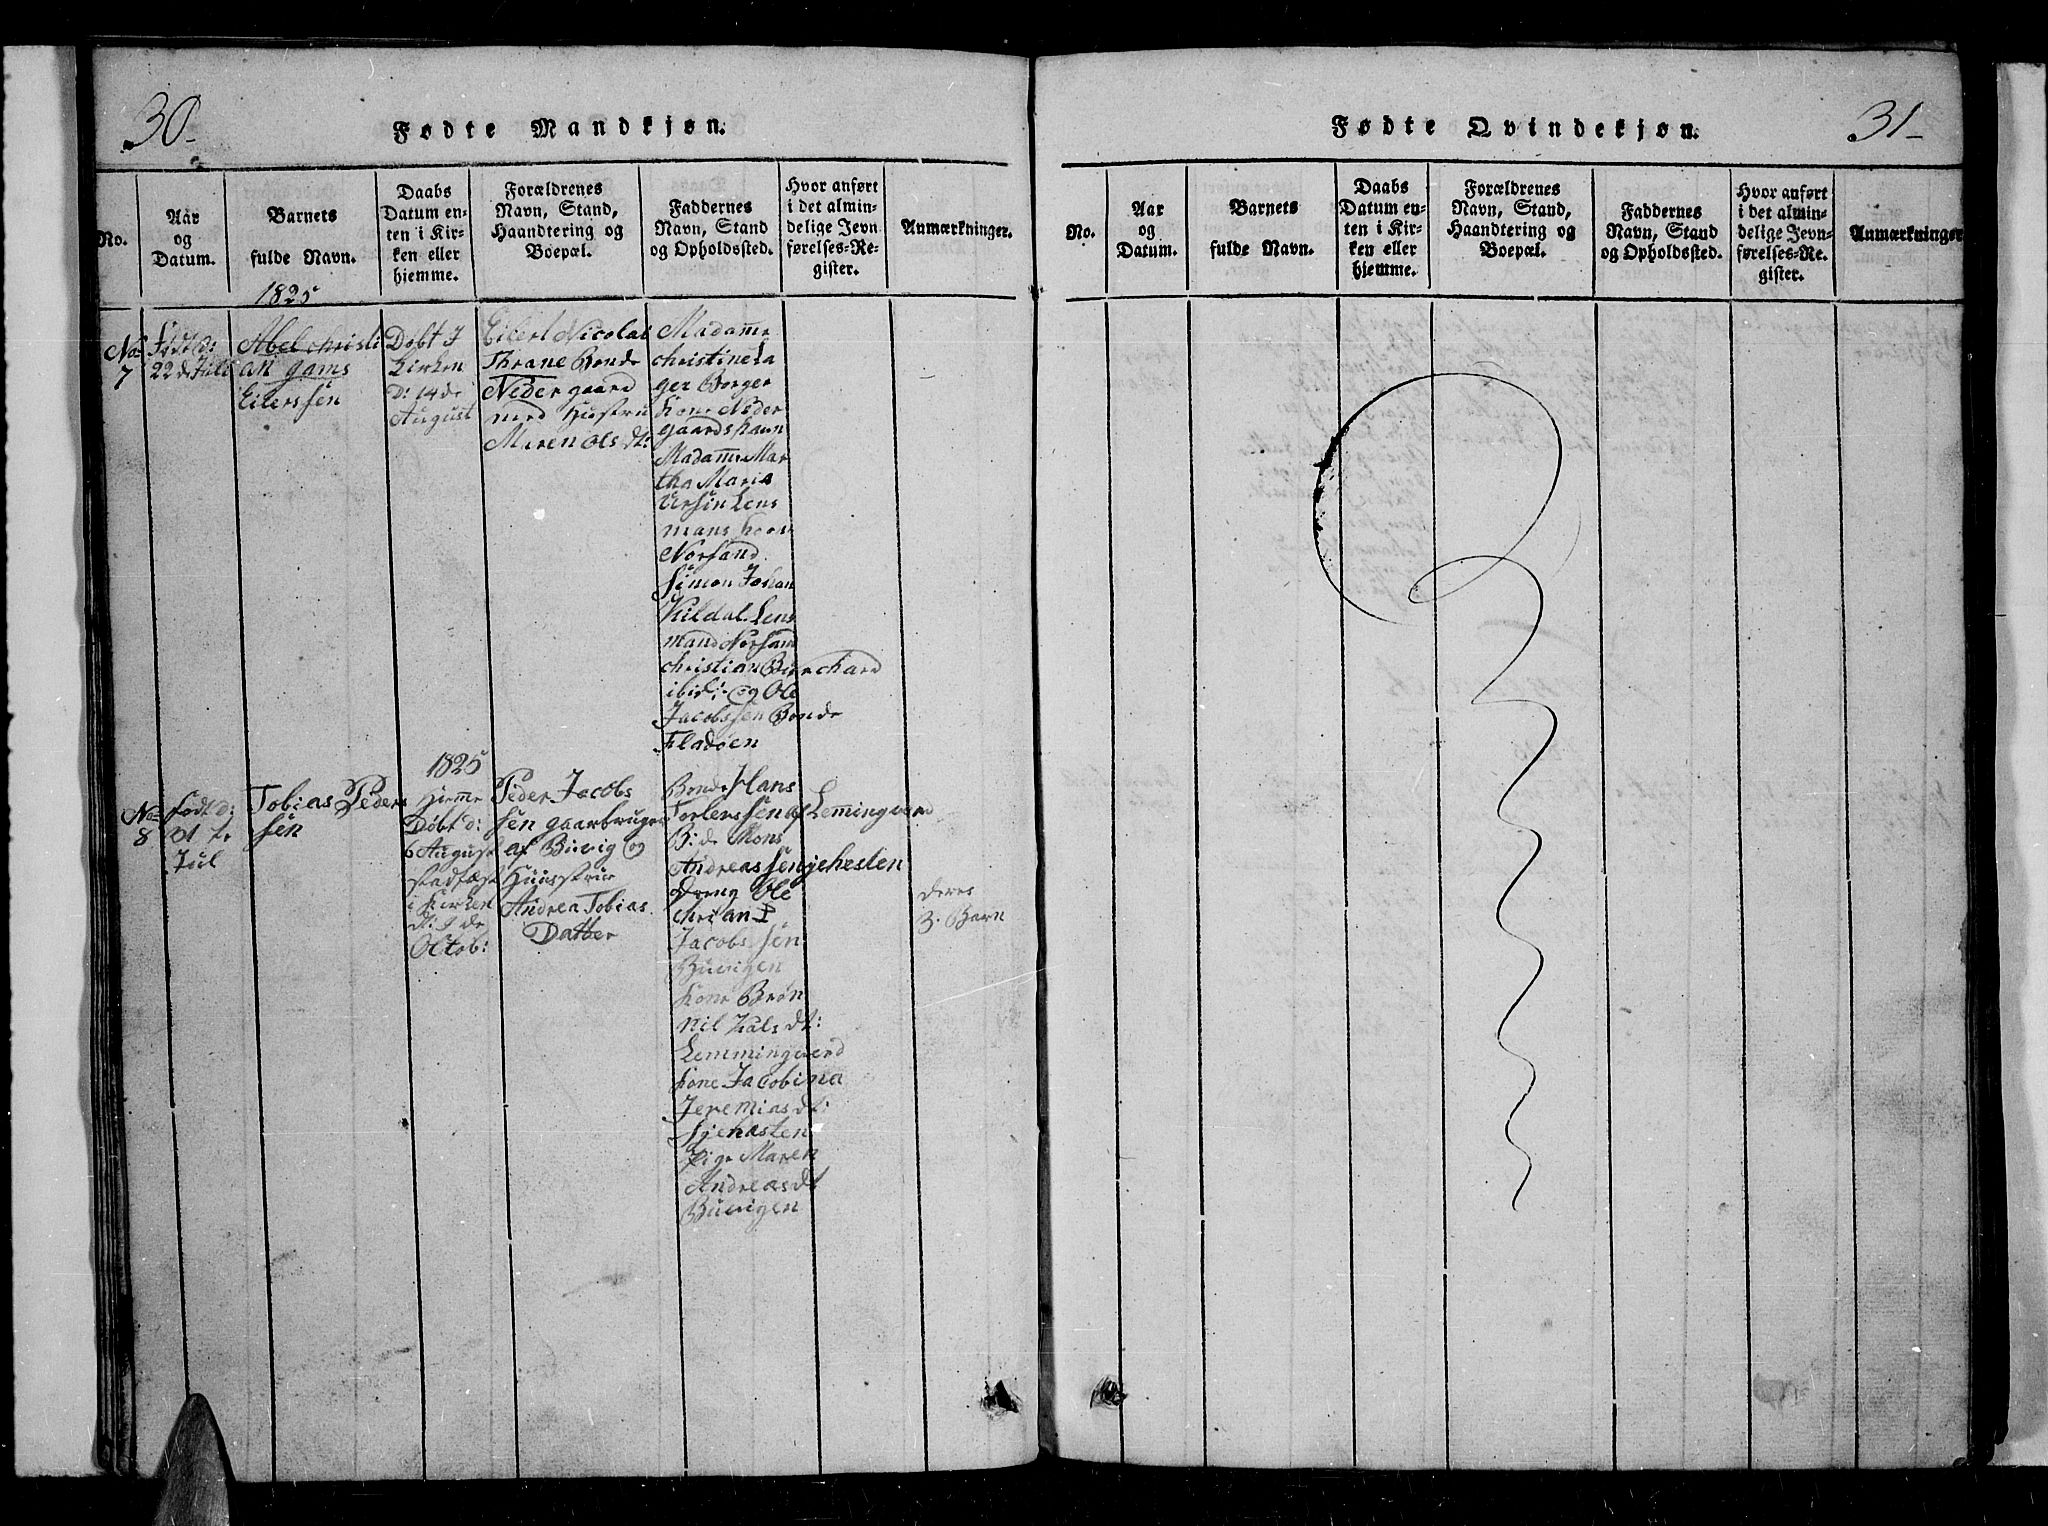 30-
Fødte Mandkjøn.
No.
Aar
og
Datum.
Barnets
fulde Navn.
Daabs
Datum en-
ten i Kir-
ken eller
hjemme.
Forældrenes
Navn, Stand,
Haandtering og
Boepæl.
Faddernes
Navn, Stand
og Opholdssted.
Hvor anført
i det almin-
delige Jevn
førelses-Re-
gister.
Anmærkninger.
1825
No
7
Født d:
22 de Juli
Abel Christi
an gams
Eilerssen
Døbt I
Kirken
D: 14 de
August
Eilert Nicolai
Thrane Bonde
Nedergaard
med Hustru
Maren Ols dt:
Madame
Christine La
ger Borger
Kone Neder
gaards havn
Madame Mar
tha Maria
Ursin Lens
mans kone
Norsand
Simon Johan
Kildal. Lens
mand Norsand
Christian Burchard
ibid: og Ole
Jacobssen Bonde
Fladøen
1825
No
8
født d:
31 te
Jul
Tobias Peders
sen
Hiemme
Døbt d:
6 August
stadfæst
i Kirken
d: 9 de
Octob:
Peder Jacobs
sen gaarbruger
af Buvig og
Huusstrue
Andrea Tobias
Datter
Bonde Hans
Torlerssen af Lemingværd
B: de Mons
Andreassen gjehesten
Dreng Ole
Chrian
Jacobssen
Buvigen
Kone Brøn
nil Hals dt:
Lemmingværd
Kone Jacobina
Jeremias dt:
Gjehesten
Pige Maren
Andreas dt
Buvigen
deres
3. Barn
31-
Fødte Qvindekjøn.
No.
Aar
og
Datum.
Barnets
fulde Navn.
Daabs
Datum en-
ten i Kir-
ken eller
hjemme.
Forældrenes
Navn, Stand,
Haandtering og
Boepæl.
Faddernes
Navn, Stand
og Opholdssted.
Hvor anført
i det almin-
delige Jevn-
førelses-Re-
gister.
Anmærkninger